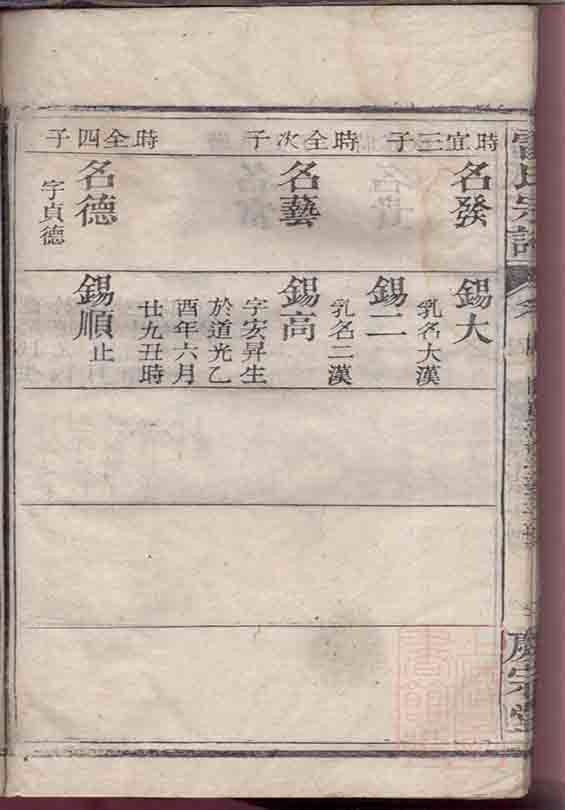 氏宗譜
時宜三子
時全次子
時全四子
名發
名藝
名德
字貞德
錫大
乳名大漢
錫二
乳名二漢
錫高
字亥昇生
於道光乙
酉年六月
廿九丑時
錫順止